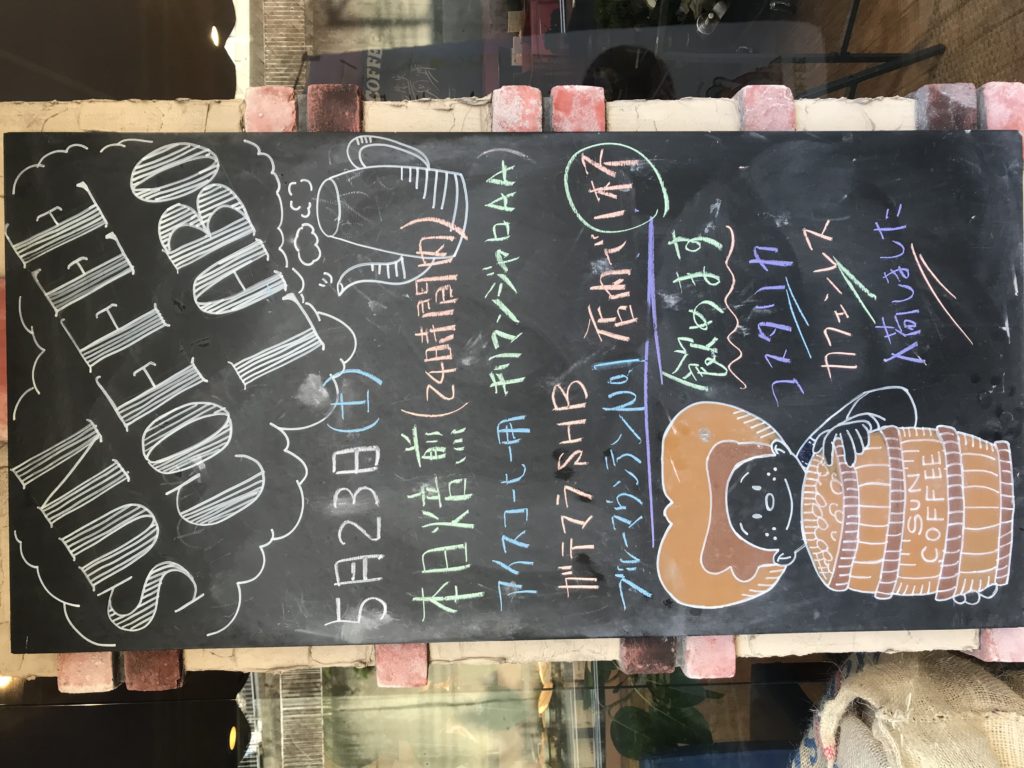 SUN
COFFEE
COFFEE
LABO
5月23日(土)
本日焙煎(24時間以内)
アイスコーヒー用 キリマンジャロAA
ガテマラSHB
ブルーマウンテンNo1 店内で1杯
飲めます
コスタリカ
カフェンヒス
入荷しました
SUN
COFFEE